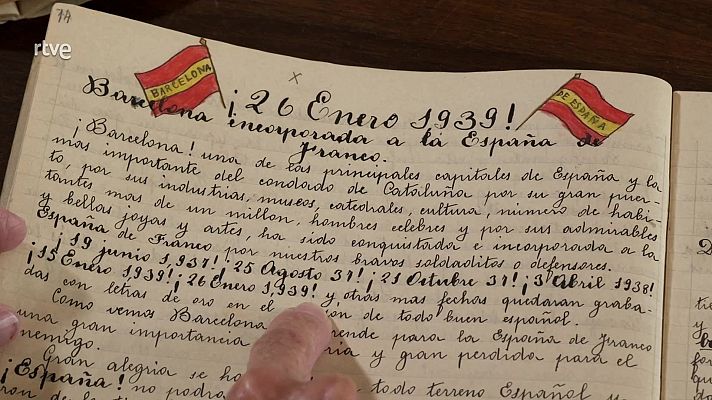 7A
rtve
BARCELONA
DE ESPAÑA
x
¡26 Enero 1939!
Barcelona incorporada a la España de
Franco.
¡Barcelona! una de las principales capitales de España y la
mas importante del condado de Cataluña por su gran puer-
to, por sus industrias, museos, catedrales, cultura, número de habi-
tantes mas de un millon, hombres celebres y por sus admirables
y bellas joyas y artes, ha sido conquistada e incorporada a la
España de Franco por nuestros bravos soldaditos o defensores.
¡19 junio 1.937! ¡25 Agosto 37! ¡21 Octubre 37! ¡3 Abril 1938!
¡15 Enero 1939! ¡26 Enero 1.939! y otras mas fechas quedaran graba-
das con letras de oro en el de todo buen español.
Como vemos Barcelona para la España de Franco
una gran importancia y gran perdida para el
enemigo.
Gran alegria se todo terreno Español y
¡España! no